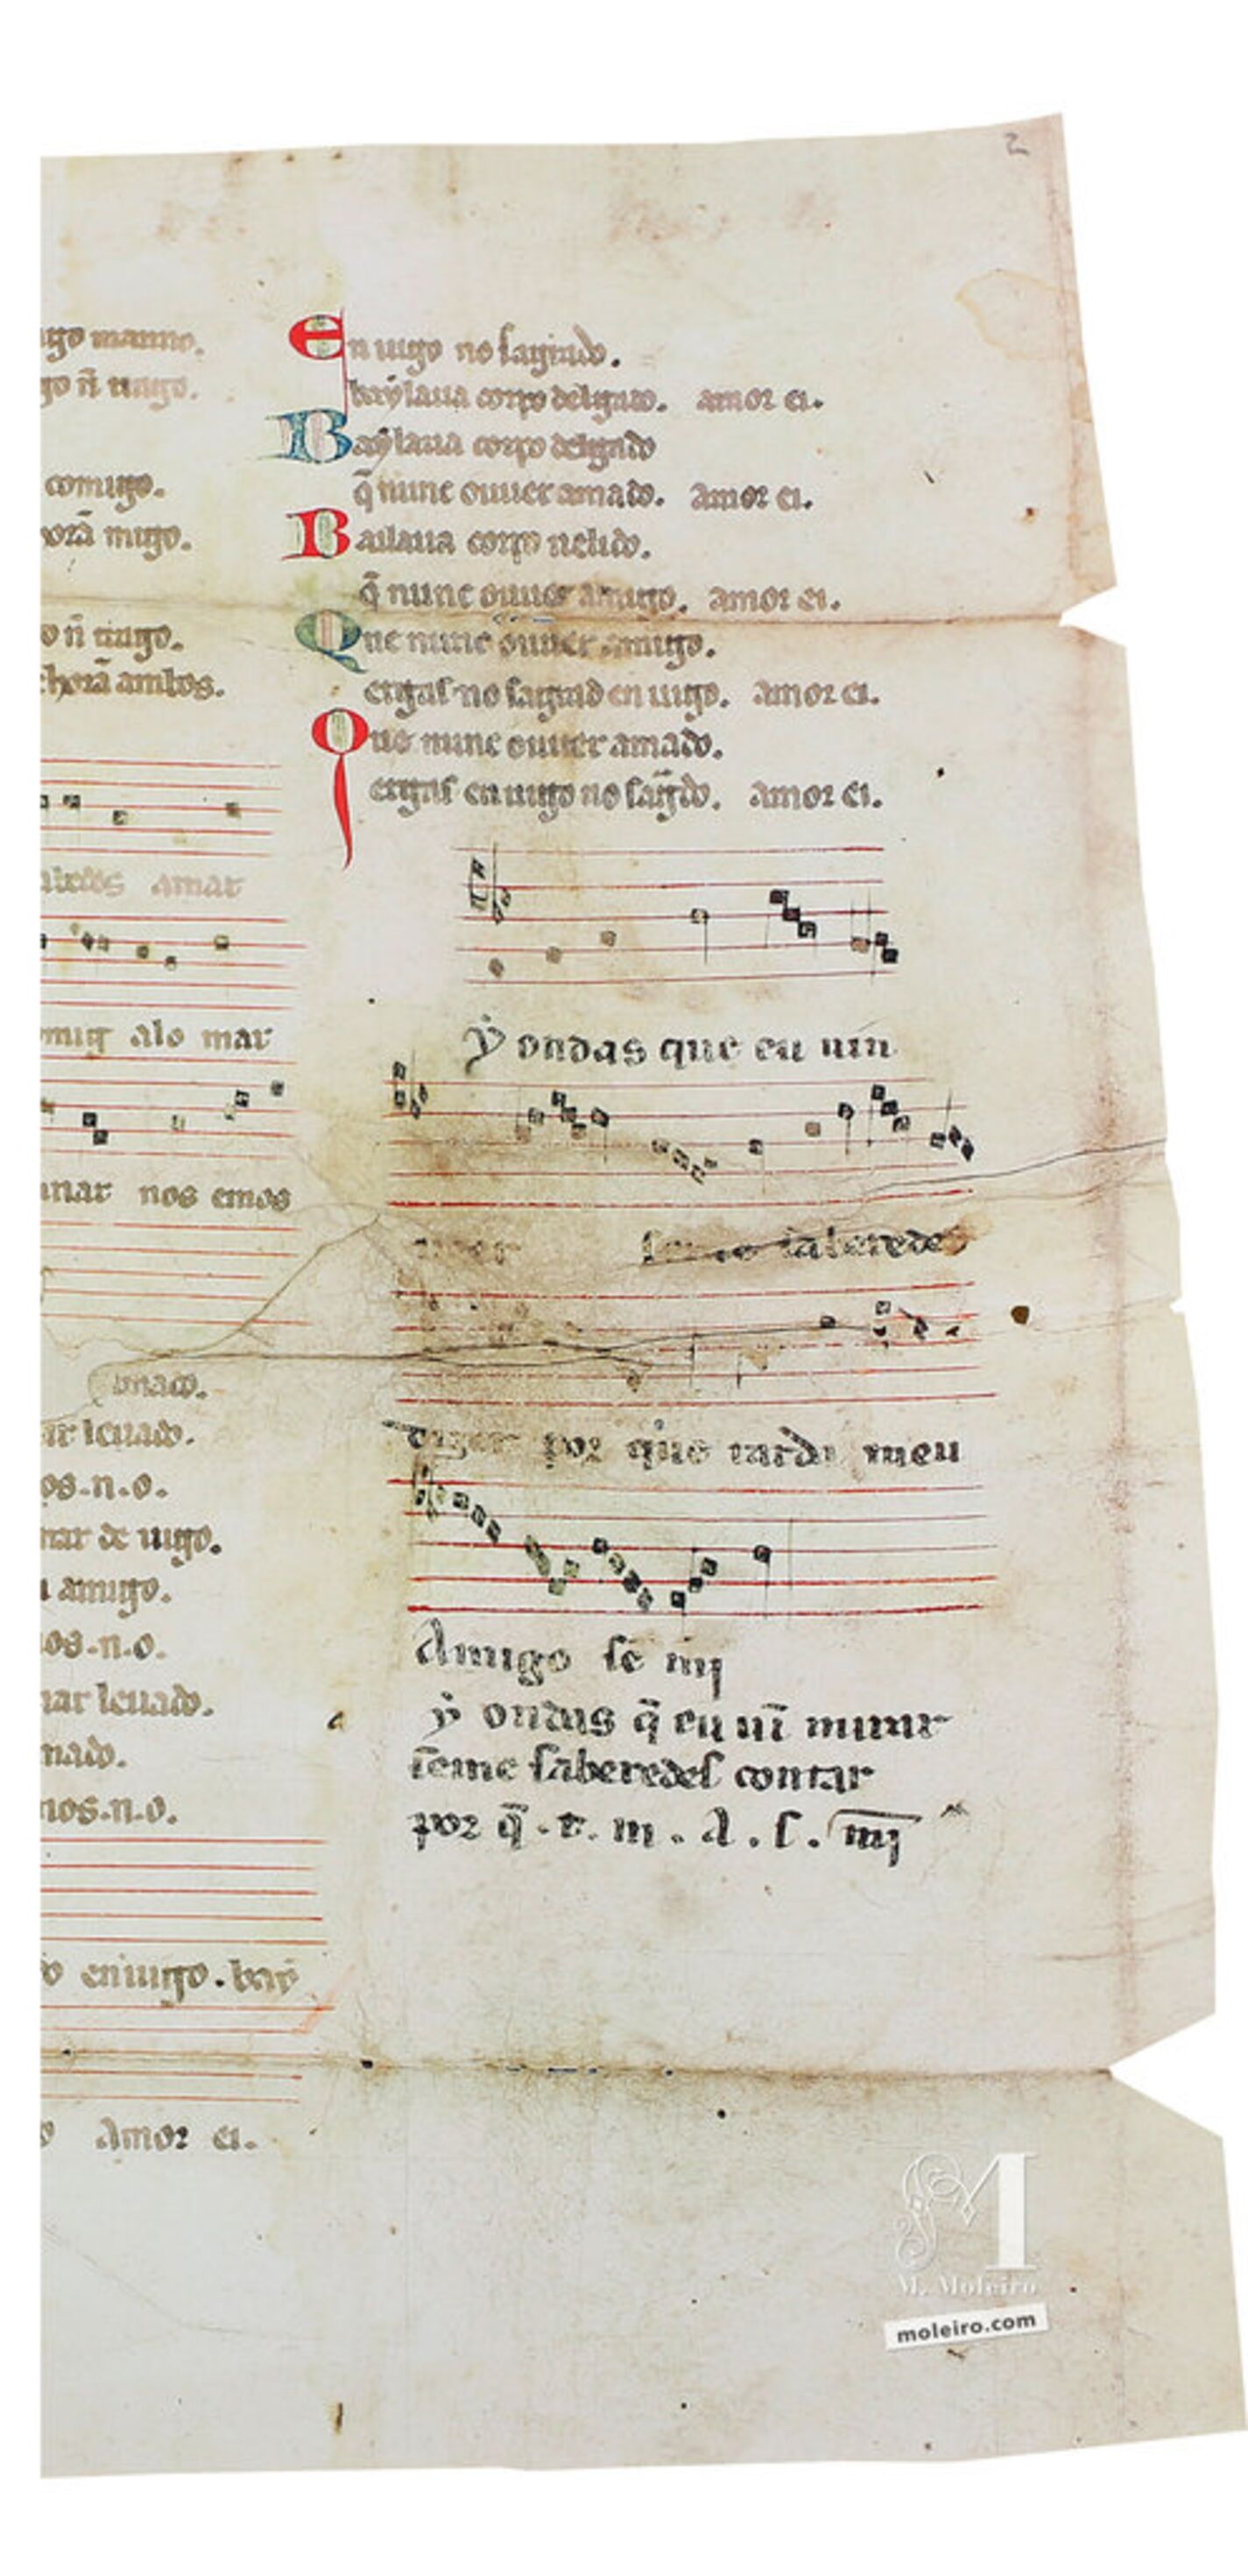 2
ugo manno.
go ñ uugo.
comugo.
uorã migo.
o ñ uugo.
chorã ambos.
amar
alo mar
nos emos
ar leuado.
os.n.o.
mar de uigo.
amigo.
nos.n.o.
mar leuado.
mado.
nos.n.o.
o en uigo. bay
o Amor ei.
En uigo no sagrado.
baylaua corpo delgado. amor ei.
Baylaua corpo delgado
q̃ nunc ouuer amado. amor ei.
Bailaua corpo uelido.
q̃ nunc ouuer amigo. amor ei.
Que nunc ouuer amigo.
ergas no sagrad en uigo. amor ei.
Que nunc ouuer amado.
ergas en uigo no sag̃do. amor ei.
ẏ ondas que eu uin
ueer se me saberedes
dizer por que tarda meu
Amigo sẽ mĩ
ẏ ondas q̃ eu uĩ mirar
seme saberedes contar
por q̃ . t. m . A . s . mĩ
M. Moleiro
moleiro.com